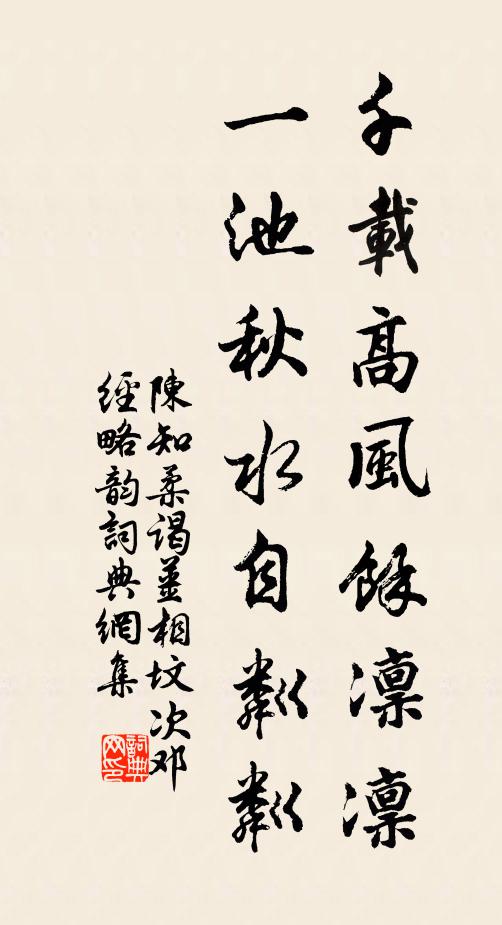 千載高風餘凜凜
一池秋水自粼粼
陳知柔謁薑相坟次邓
經略韵詞典網集
詞典
网印